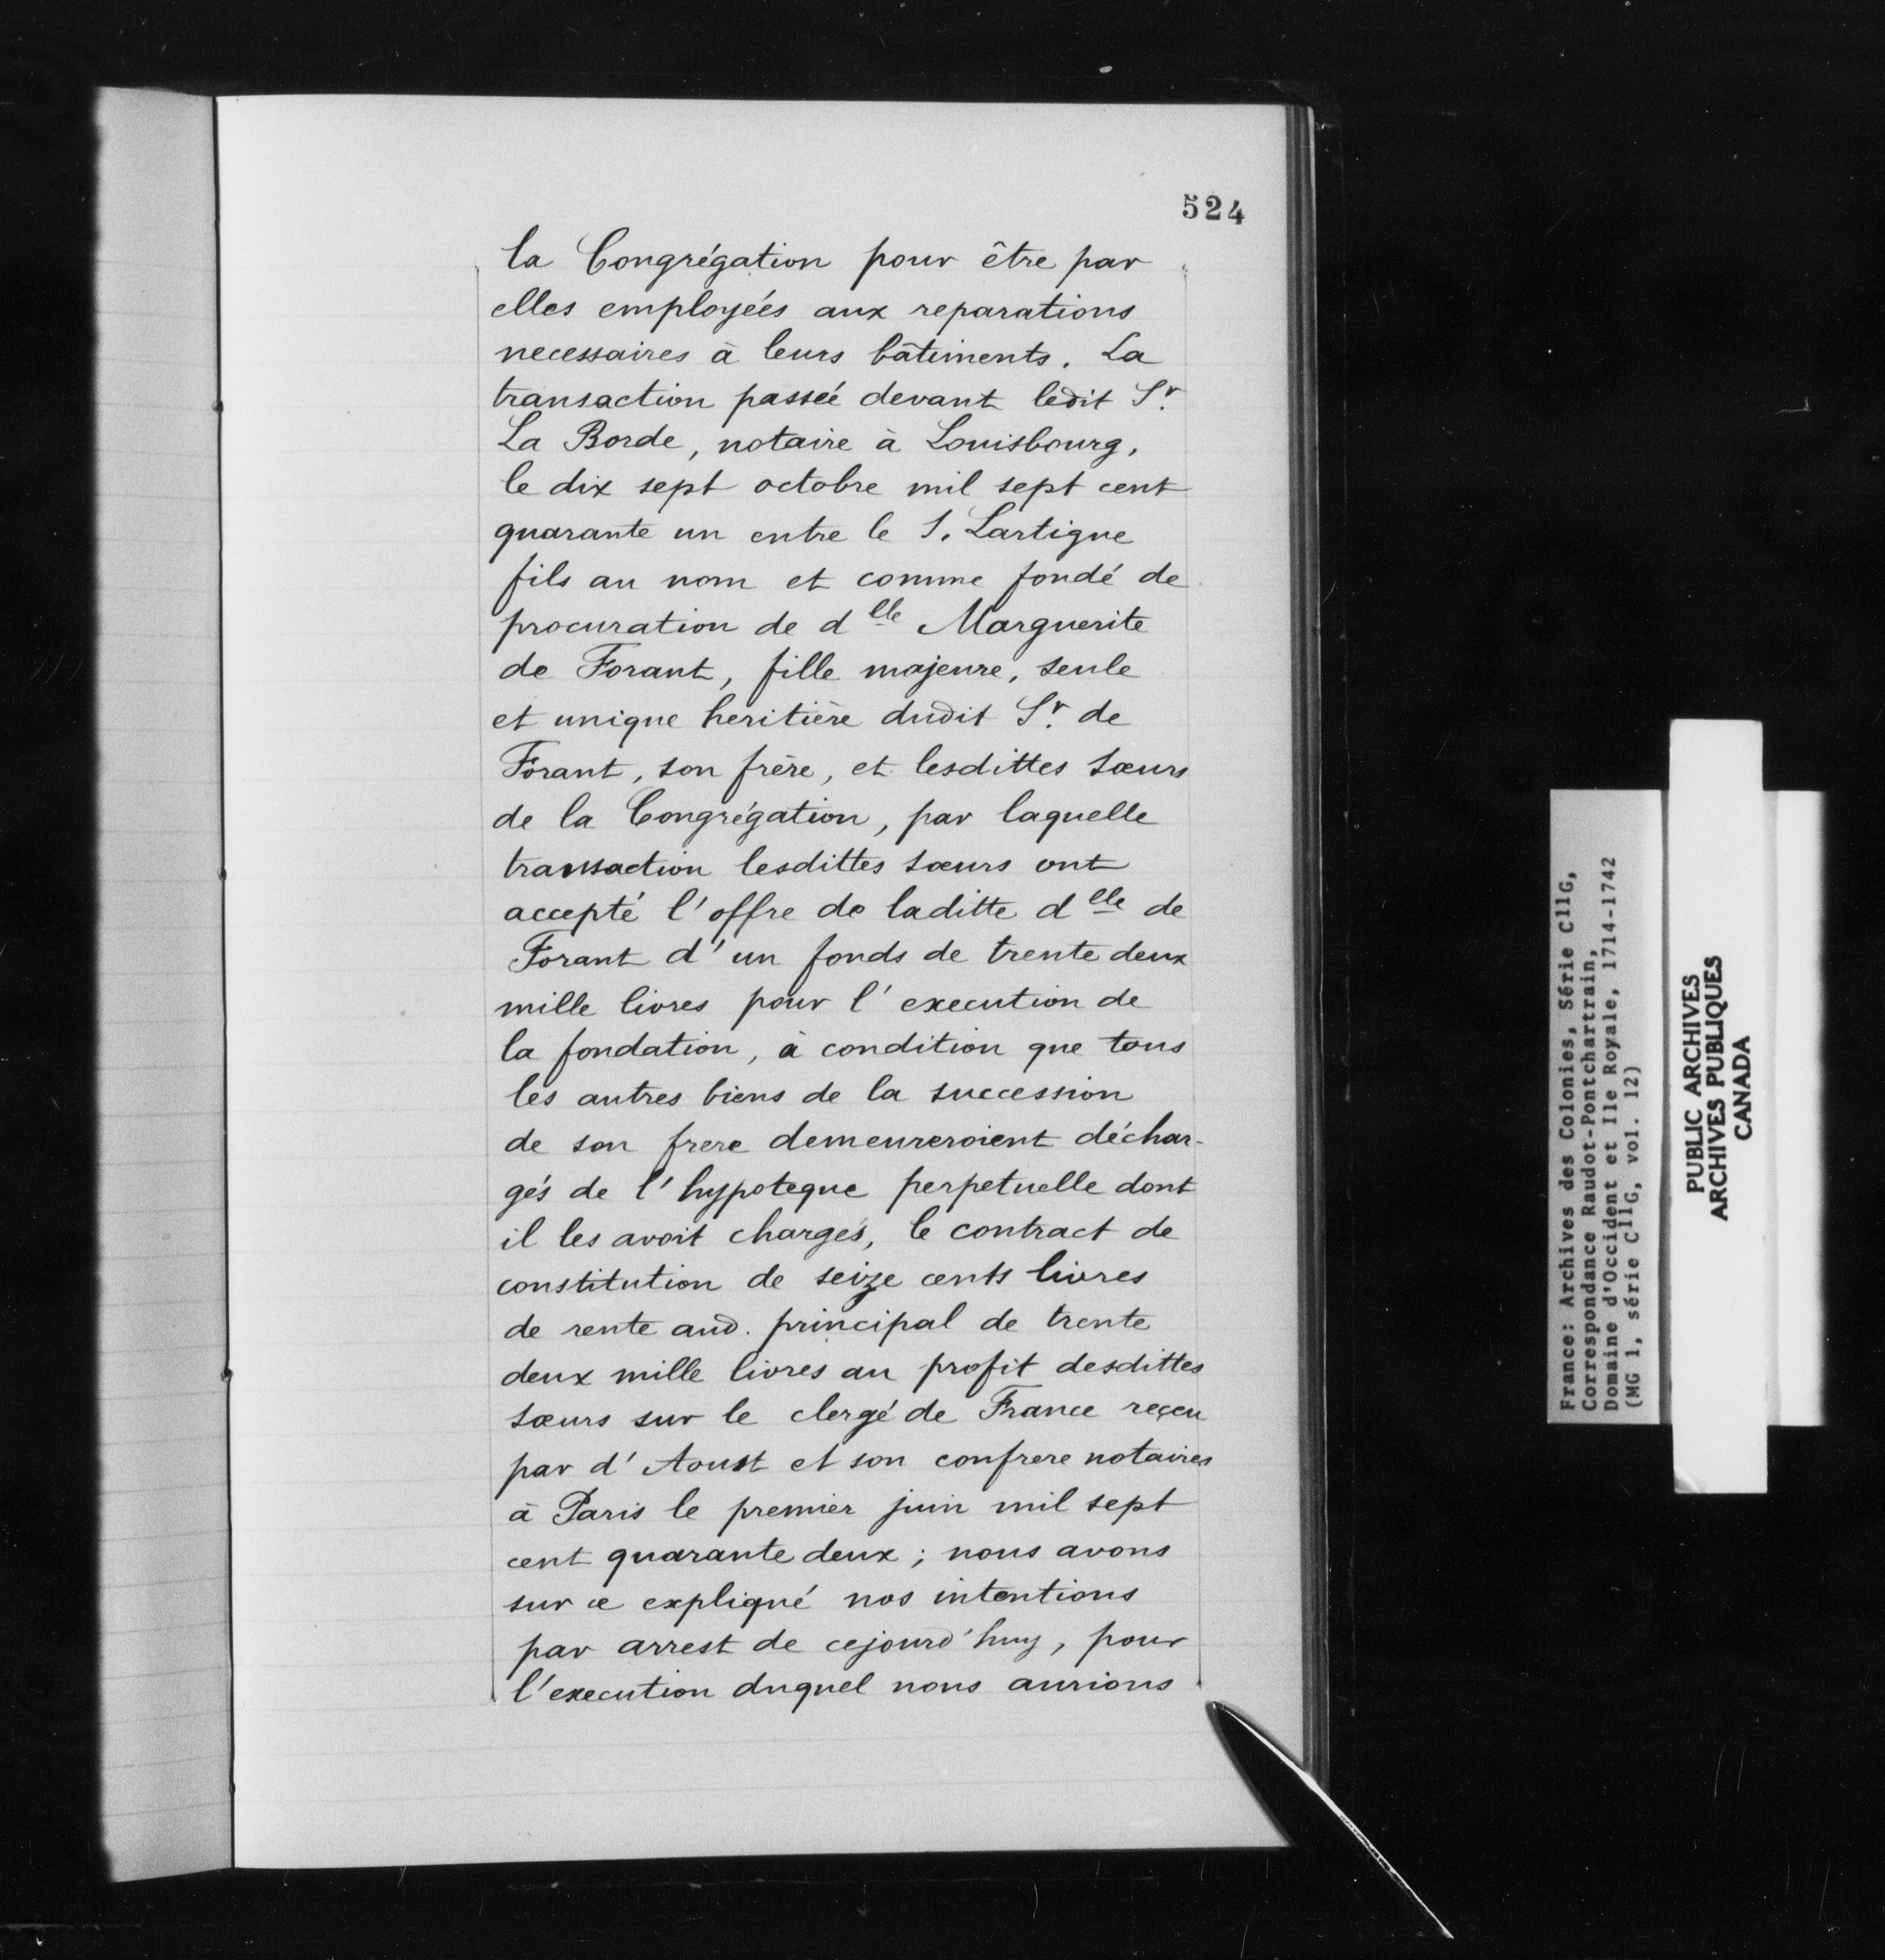 524
la Congrégation pour être par
elles employées aux reparations
necessaires à leurs bâtiments. La
transaction passée devant ledit Sr.
La Borde, notaire à Louisbourg,
le dix sept octobre mil sept cent
quarante un entre le S. Lartigue
fils au nom et comme fondé de
procuration de d lle Marguerite
de Forant, fille majeure, seule
et unique heritière dudit Sr. de
Forant, son frère, et lesdittes sœurs
de la Congrégation, par laquelle
transaction lesdittes sœurs ont
accepté l'offre de laditte d elle de
Forant d'un fonds de trente deux
mille livres pour l'execution de
la fondation, à condition que tous
les autres biens de la succession
de son frere demeureroient déchar-
gés de l'hypoteque perpetuelle dont
il les avoit chargés, le contract de
constitution de seize cents livres
de rente aud. principal de trente
deux mille livres au profit desdittes
sœurs sur le clergé de France reçeu
par d'Aoust et son confrere notaires
à Paris le premier juin mil sept
cent quarante deux ; nous avons
sur ce expliqué nos intentions
par arrest de cejourd'huy, pour
l'execution duquel nous aurions
France: Archives des Colonies, Série C11G,
Correspondance Raudot-Pontchartrain,
Domaine d'Occident et Ile Royale, 1714-1742
(MG 1, série C11G, vol. 12)
PUBLIC ARCHIVES
ARCHIVES PUBLIQUES
CANADA